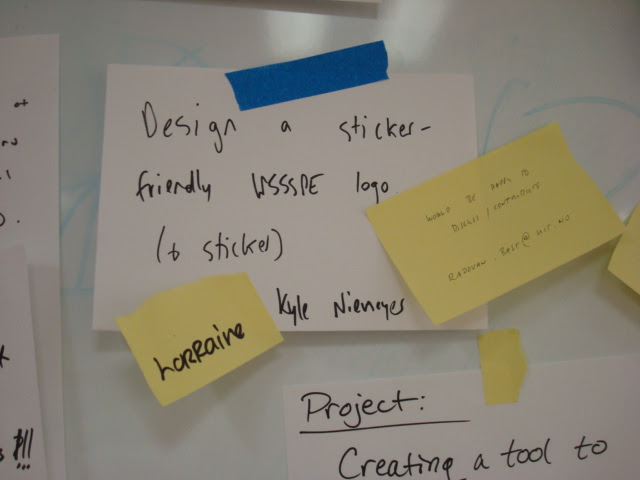 Design a sticker-
friendly WSSSPE logo
(+ sticker)
Kyle Niemeyer
Lorraine
WOULD BE HAPPY TO
DISCUSS / CONTRIBUTE
RADOVAN.BAST@UIT.NO
Project:
Creating a tool to